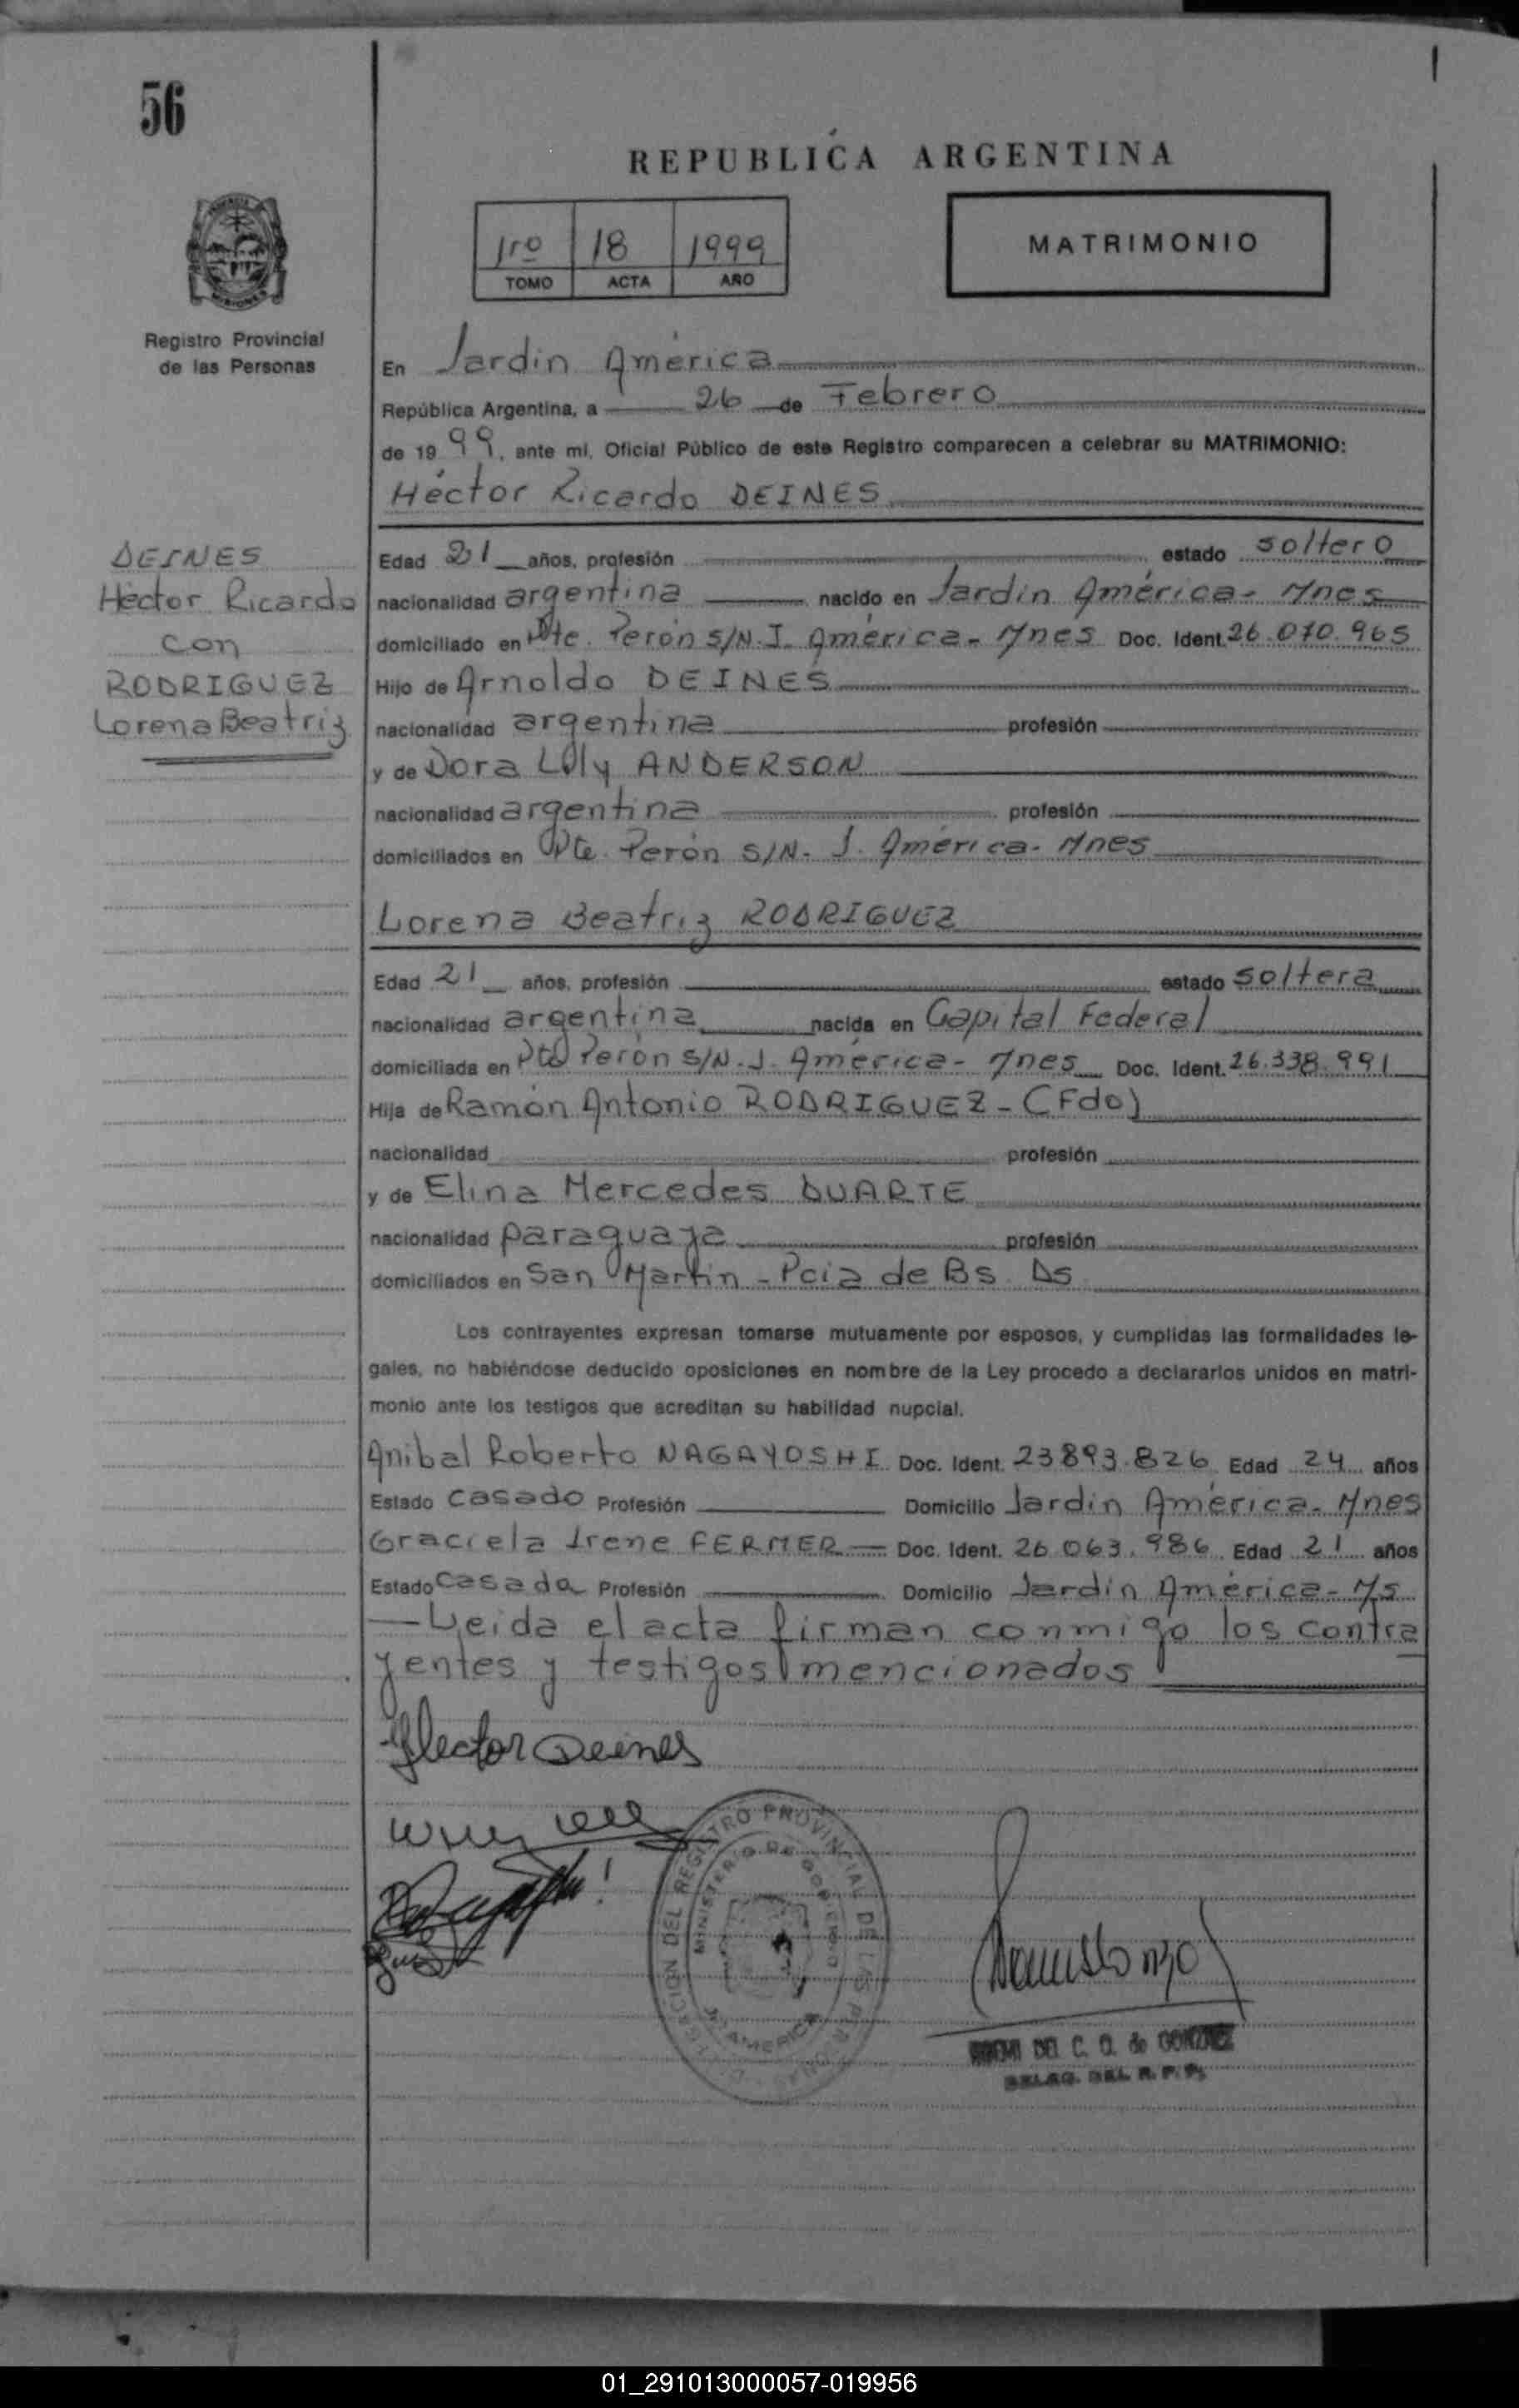 56
REPUBLICA ARGENTINA
1ro 18 1999
TOMO ACTA AÑO
MATRIMONIO
Registro Provincial
de las Personas
En Jardin América
República Argentina, a 26 de Febrero
de 19 99, ante mí, Oficial Público de este Registro comparecen a celebrar su MATRIMONIO:
Héctor Ricardo DEINES
DEINES
Héctor Ricardo
con
RODRIGUEZ
Lorena Beatriz
Edad 21 años, profesión estado soltero
nacionalidad argentina nacido en Jardín América - Mnes
domiciliado en Pte. Perón S/N. J. América - Mnes Doc. Ident. 26.070.965
Hijo de Arnoldo DEINES
nacionalidad argentina profesión
y de Dora Lily ANDERSON
nacionalidad argentina profesión
domiciliados en Pte. Perón S/N. J. América - Mnes
Lorena Beatriz RODRIGUEZ
Edad 21 años, profesión estado soltera
nacionalidad argentina nacida en Capital Federal
domiciliada en Pte Perón S/N. J. América - Mnes Doc. Ident. 26.338.991
Hija de Ramón Antonio RODRIGUEZ - (Fdo)
nacionalidad profesión
y de Elina Mercedes DUARTE
nacionalidad paraguaya profesión
domiciliados en San Martín - Pcia de Bs. As
Los contrayentes expresan tomarse mutuamente por esposos, y cumplidas las formalidades le-
gales, no habiéndose deducido oposiciones en nombre de la Ley procedo a declararlos unidos en matri-
monio ante los testigos que acreditan su habilidad nupcial.
Anibal Roberto NAGAYOSHI Doc. Ident. 23.893.826 Edad 24 años
Estado casado Profesión Domicilio Jardín América - Mnes
Graciela Irene FERMER Doc. Ident. 26.063.986 Edad 21 años
Estado casada Profesión Domicilio Jardín América - Ms
Leida el acta firman conmigo los contra
yentes y testigos mencionados
Hector Deines
DELEGACION DEL REGISTRO PROVINCIAL DE LAS PERSONAS
MINISTERIO DE GOBIERNO
J. AMERICA
DEL C. O. de GONZALEZ
DELEG. DEL R. P. P.
01_291013000057-019956